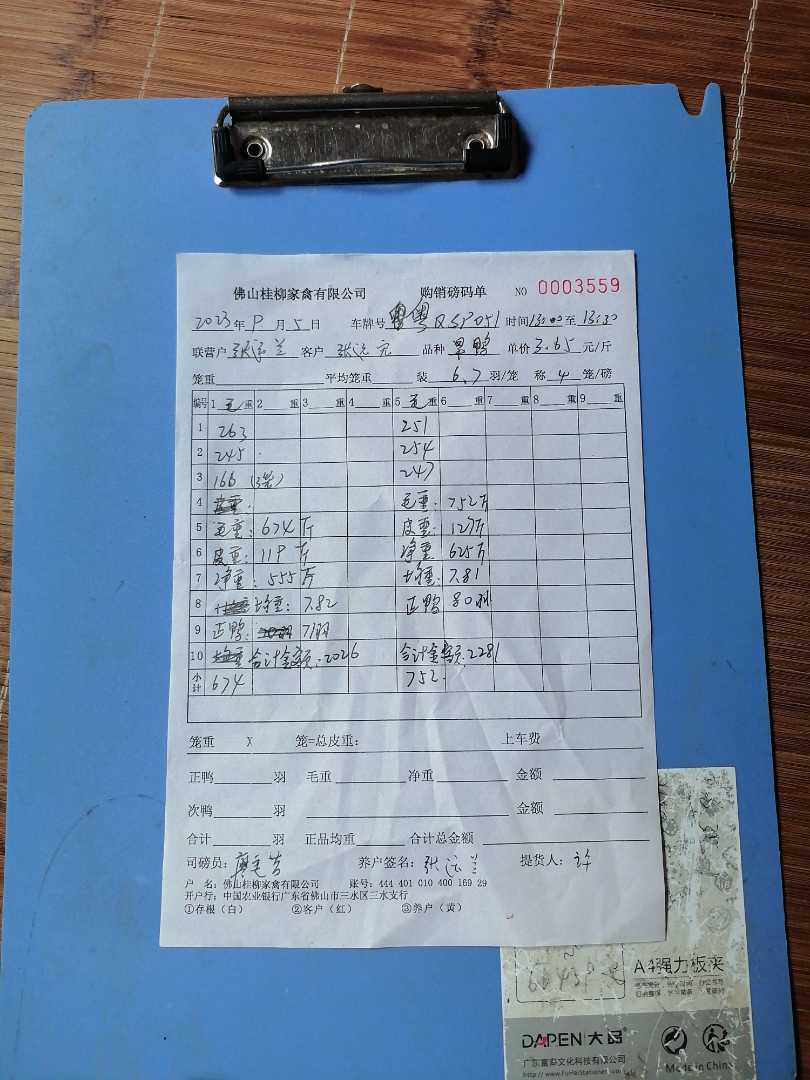 佛山桂柳家禽有限公司 购销磅码单 NO 0003559
2023年 9 月 5 日 车牌号 粤 QSP051 时间13:00至 13:30
联营户 张远兰 客户 张远 品种 单价 3.65 元/斤
笼重 平均笼重 装 6.7 羽/笼 称 4 笼/磅
编号 1 毛 重 2 重 3 重 4 重 5 毛 重 6 重 7 重 8 重 9 重
1 263 251
2 245 254
3 166 247
4 毛重: 752斤
5 毛重: 674斤 皮重: 127斤
6 皮重: 119斤 净重 625斤
7 净重: 555斤 均重: 7.81
8 均重: 7.82 正鸭 80羽
9 正鸭: 71羽
10 合计金额: 2026 合计金额: 2281
小计 674 752
笼重 X 笼=总皮重: 上车费
正鸭 羽 毛重 净重 金额
次鸭 羽 金额
合计 羽 正品均重 合计总金额
司磅员: 养户签名: 张远兰 提货人:
户 名: 佛山桂柳家禽有限公司 账号: 444 401 010 400 169 29
开户行: 中国农业银行广东省佛山市三水区三水支行
①存根（白） ②客户（红） ③养户（黄）
A4强力板夹
DAPEN 大品
广东富彩文化科技有限公司
Made in China